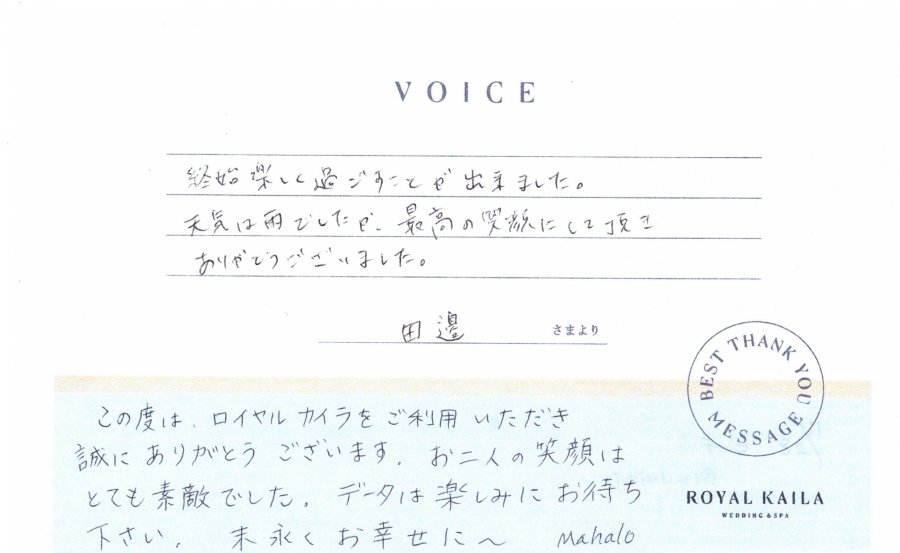 VOICE
終始楽しく過ごすことが出来ました。
天気は雨でしたが、最高の笑顔にして頂き
ありがとうございました。
田邉 さまより
BEST THANK YOU MESSAGE
この度は、ロイヤルカイラをご利用いただき
誠にありがとうございます。お二人の笑顔は
とても素敵でした。データは楽しみにお待ち
下さい。末永くお幸せに〜 Mahalo
ROYAL KAILA
WEDDING & SPA